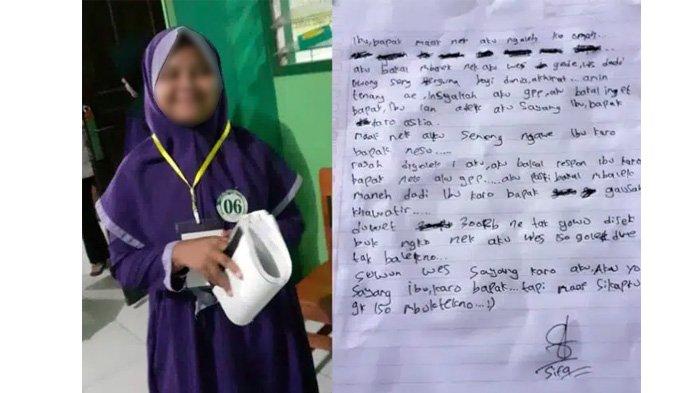 06
Ibu, bapak maaf nek aku ngaleh ko omah...
aku bakal mbalek nek aku wes gede, wes dadi
wong seng berguna bagi dunia, akhirat... amin
tenang ae, insyallah aku gpp, aku bakal inget
bapak, ibu lan adek aku sayang ibu, bapak
karo astia...
maaf nek aku seneng ngawe ibu karo
bapak nesu....
rasah digoleki aku, aku bakal respon ibu karo
bapak nek aku gpp..... aku pasti bakal mbalek
maneh dadi ibu karo bapak gausah
khawatir....
duwet 300Rb ne tak gowo disek
buk ngko nek aku wes iso golek duwe
tak balekno...
suwun wes sayang karo aku, Aku yo
sayang ibu, karo bapak... tapi maaf sikapku
gk iso mbuktekno...:)